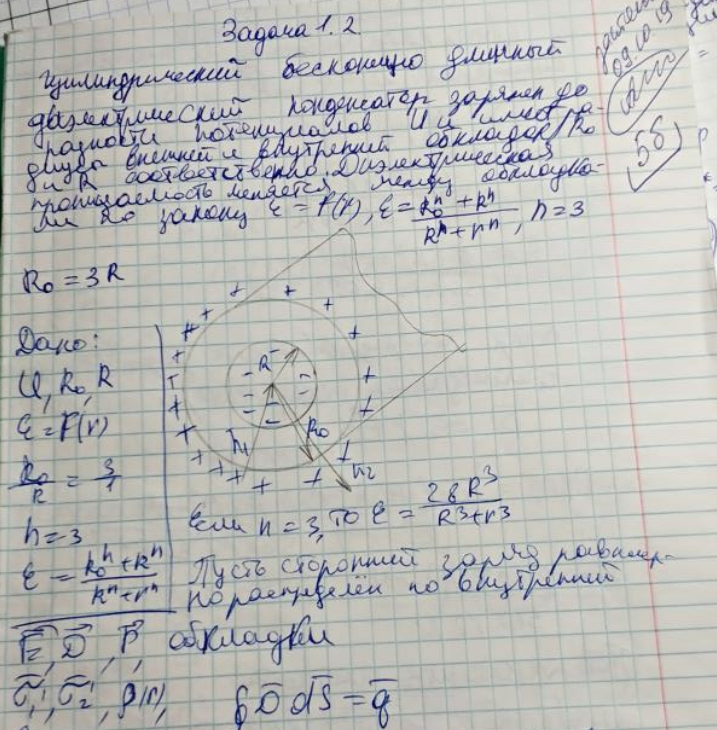 Задача 1.2
Цилиндрический бесконечно длинный
диэлектрический конденсатор заряжен до
разности потенциалов U и имеет ра-
диусы внешней и внутренней обкладок R₀
и R соответственно. Диэлектрическая
проницаемость меняется между обкладка-
ми по закону ε = f(r), ε = (R₀ⁿ + Rⁿ)/(Rⁿ + rⁿ), n = 3
09.10.19
5б
R₀ = 3R
Дано:
U, R₀, R
ε = f(r)
R₀/R = 3/1
n = 3
ε = (R₀ⁿ + Rⁿ)/(Rⁿ + rⁿ)
R
R₀
r₁
r₂
Если n = 3, то ε = 28R³/(R³ + r³)
Пусть сторонний заряд равномер-
но распределён по внутренней
обкладки
D, P,
σ₁', σ₂', ρ(r),
∮D dS = q